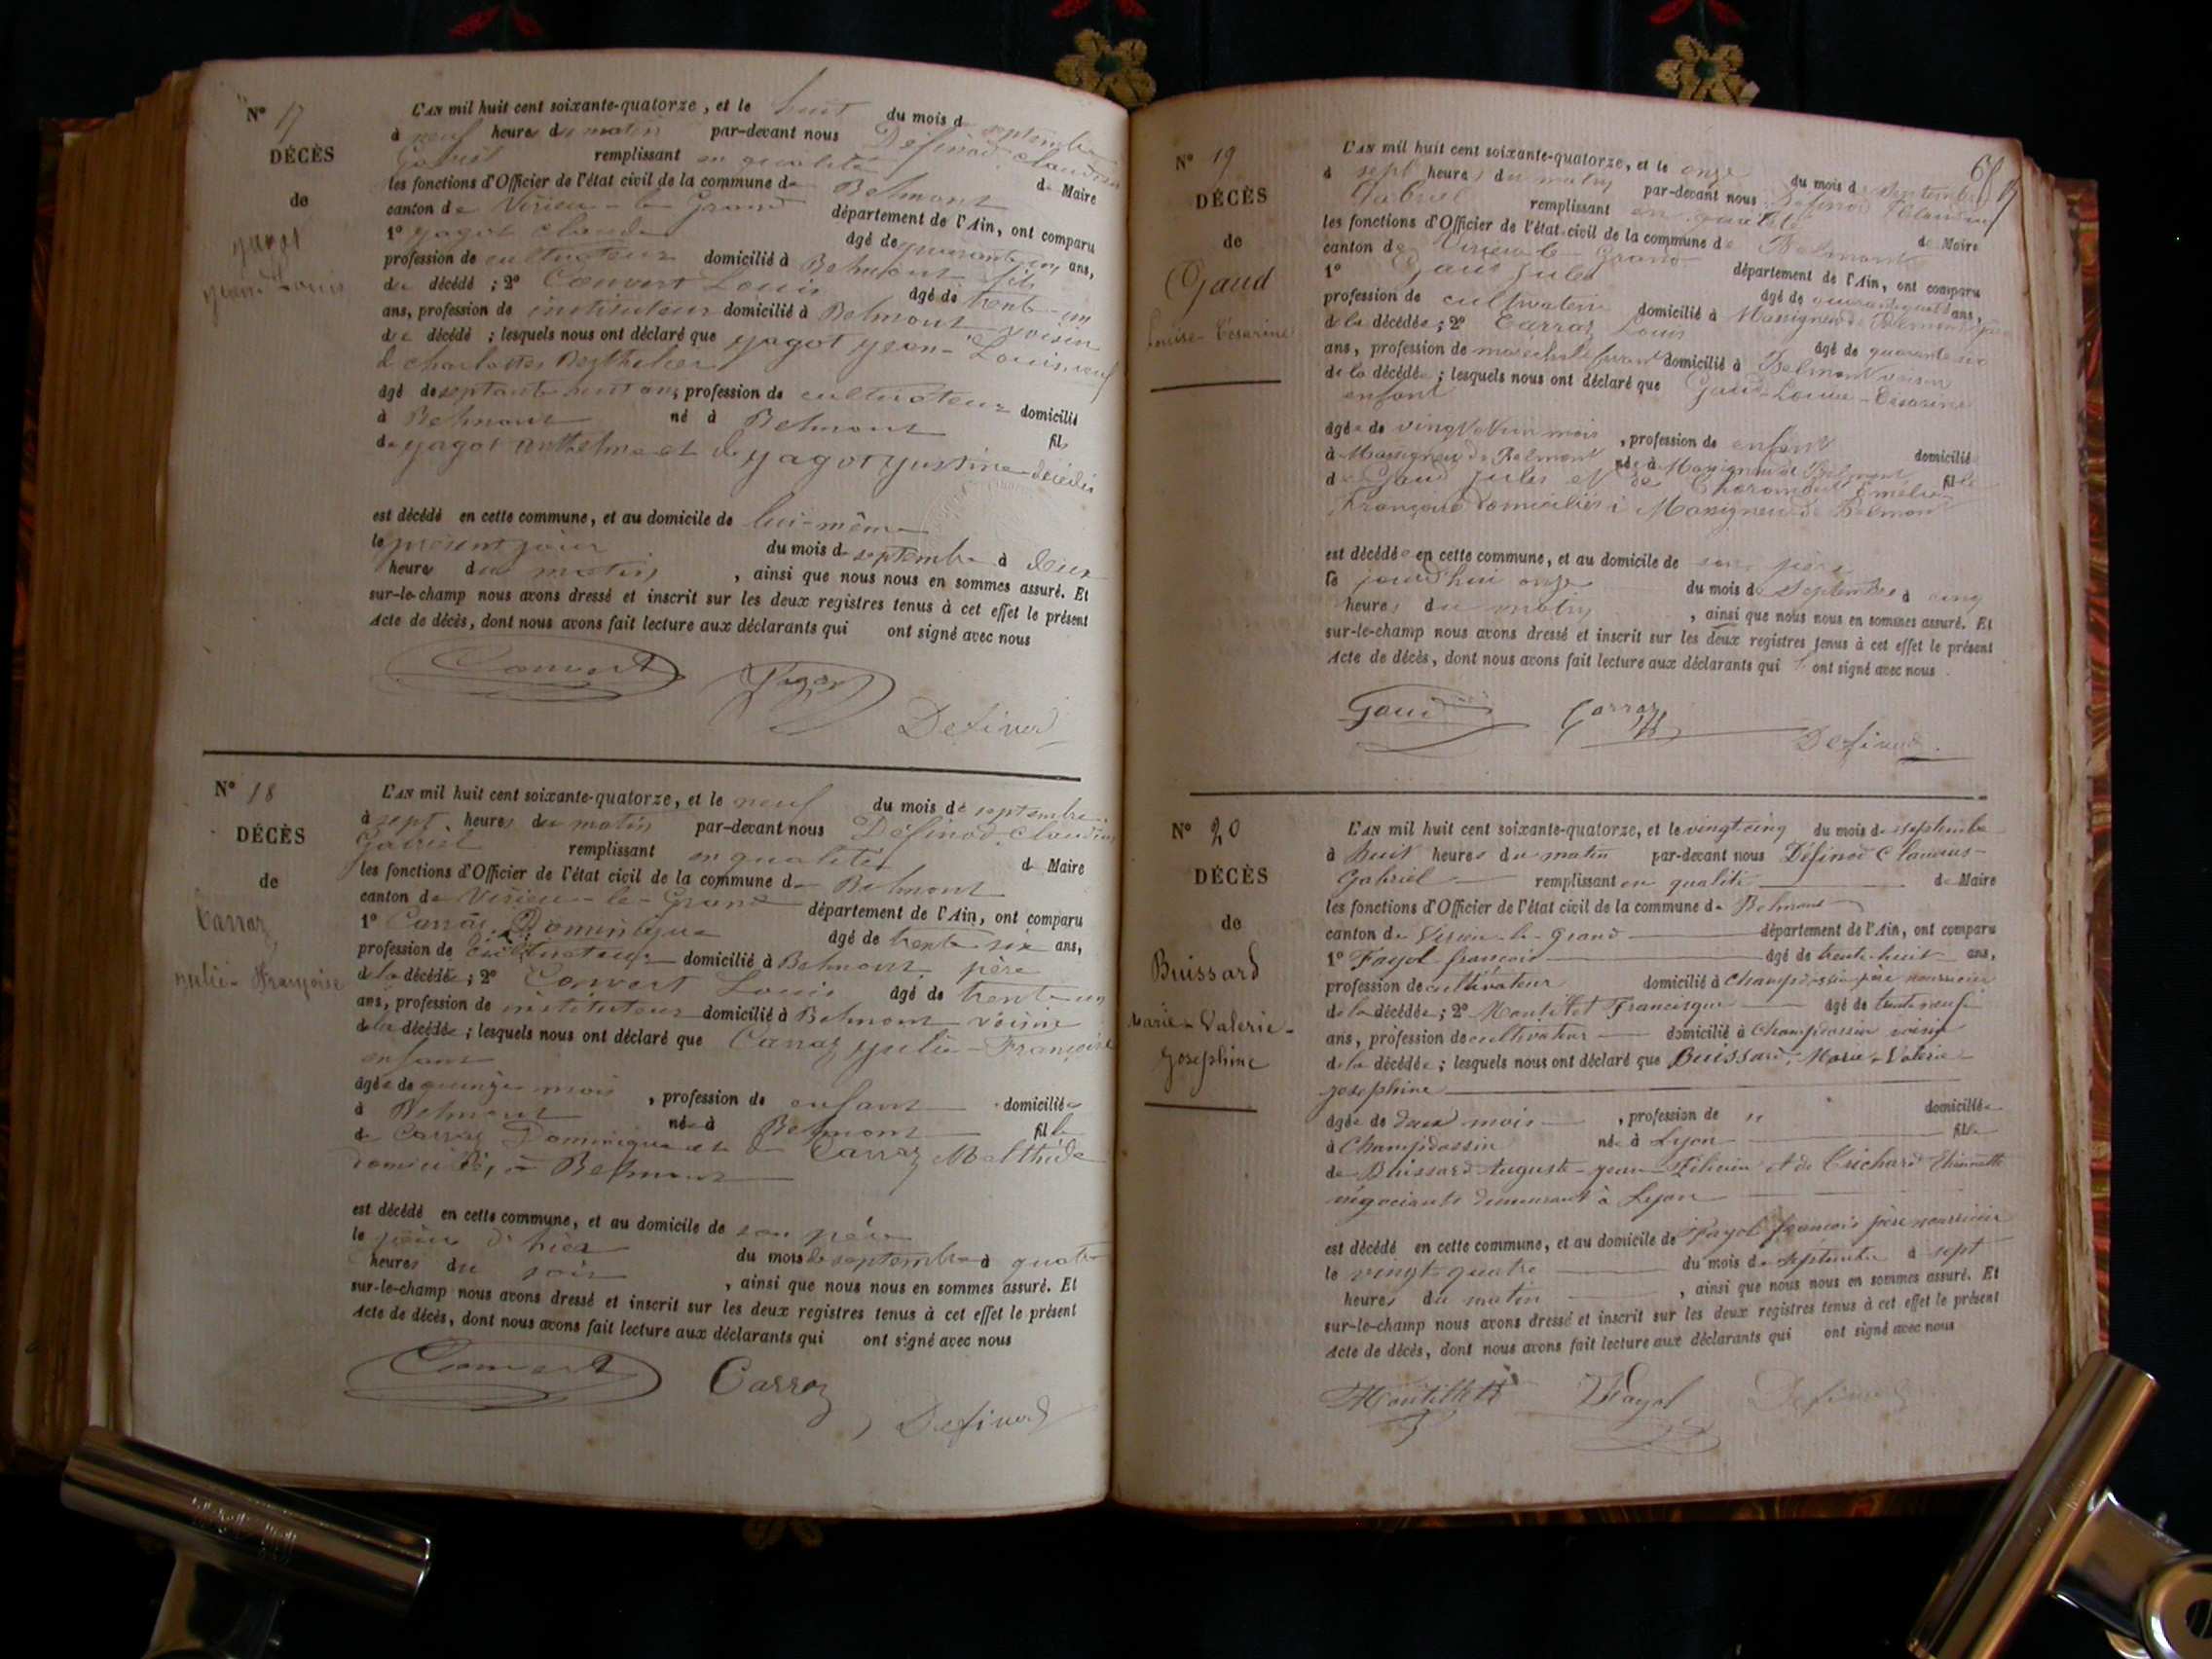 N° 17
DÉCÈS
de
Yagot
Jean-Louis
L'AN mil huit cent soixante-quatorze, et le huit du mois de septembre
à neuf heures du matin par-devant nous Définod Claudius
Gabriel remplissant en qualité de Maire
les fonctions d'Officier de l'état civil de la commune de Belmont
canton de Virieu-le-Grand département de l'Ain, ont comparu
1° Yagot Claude âgé de quarante-un ans,
profession de cultivateur domicilié à Belmont fils
du décédé ; 2° Convert Louis âgé de trente-un
ans, profession de instituteur domicilié à Belmont voisin
du décédé ; lesquels nous ont déclaré que Yagot Jean-Louis, veuf
de Charlotte Berthelier
âgé de septante huit ans, profession de cultivateur domicilié
à Belmont né à Belmont fils
de Yagot Anthelme et de Yagot Justine décédés
est décédé en cette commune, et au domicile de lui-même
le présent jour du mois de septembre à deux
heures du matin , ainsi que nous nous en sommes assuré. Et
sur-le-champ nous avons dressé et inscrit sur les deux registres tenus à cet effet le présent
Acte de décès, dont nous avons fait lecture aux déclarants qui ont signé avec nous
Convert Yagot
Définod
N° 18
DÉCÈS
de
Carraz
Julie-Françoise
L'AN mil huit cent soixante-quatorze, et le neuf du mois de septembre
à sept heures du matin par-devant nous Définod Claudius
Gabriel remplissant en qualité de Maire
les fonctions d'Officier de l'état civil de la commune de Belmont
canton de Virieu-le-Grand département de l'Ain, ont comparu
1° Carraz Dominique âgé de trente-six ans,
profession de cultivateur domicilié à Belmont père
de la décédée ; 2° Convert Louis âgé de trente-un
ans, profession de instituteur domicilié à Belmont voisin
de la décédée ; lesquels nous ont déclaré que Carraz Julie-Françoise
enfant
âgée de quinze mois , profession de enfant domiciliée
à Belmont née à Belmont fille
de Carraz Dominique et de Carraz Malthide
domiciliés à Belmont
est décédé en cette commune, et au domicile de son père
le jour d'hier du mois de septembre à quatre
heures du soir , ainsi que nous nous en sommes assuré. Et
sur-le-champ nous avons dressé et inscrit sur les deux registres tenus à cet effet le présent
Acte de décès, dont nous avons fait lecture aux déclarants qui ont signé avec nous
Convert Carraz
Définod
N° 19
DÉCÈS
de
Gaud
Louise-Césarine
L'AN mil huit cent soixante-quatorze, et le onze du mois de septembre
à sept heures du matin par-devant nous Définod Claudius
Gabriel remplissant en qualité de Maire
les fonctions d'Officier de l'état civil de la commune de Belmont
canton de Virieu-le-Grand département de l'Ain, ont comparu
1° Gaud Jules âgé de ans,
profession de cultivateur domicilié à Massignieu de Belmont père
de la décédée ; 2° Carraz Louis âgé de quarante six
ans, profession de maréchal ferrant domicilié à Belmont voisin
de la décédée ; lesquels nous ont déclaré que Gaud Louise-Césarine
enfant
âgée de vingt et un mois , profession de enfant domiciliée
à Massignieu de Belmont née à Massignieu de Belmont fille
de Gaud Jules et de Emélie
Françoise domiciliés à Massignieu de Belmont
est décédée en cette commune, et au domicile de son père
le jourd'hui onze du mois de septembre à cinq
heures du matin , ainsi que nous nous en sommes assuré. Et
sur-le-champ nous avons dressé et inscrit sur les deux registres tenus à cet effet le présent
Acte de décès, dont nous avons fait lecture aux déclarants qui ont signé avec nous
Gaud Carraz
Définod
N° 20
DÉCÈS
de
Buissard
Marie-Valerie-
Josephine
L'AN mil huit cent soixante-quatorze, et le vingt cinq du mois de septembre
à huit heures du matin par-devant nous Définod Claudius-
Gabriel remplissant en qualité de Maire
les fonctions d'Officier de l'état civil de la commune de Belmont
canton de Virieu-le-Grand département de l'Ain, ont comparu
1° Fayol françois âgé de trente-huit ans,
profession de cultivateur domicilié à Champdossin père nourricier
de la décédée ; 2° Montillet Francisque âgé de trente neuf
ans, profession de cultivateur domicilié à Champdossin voisin
de la décédée ; lesquels nous ont déclaré que Buissard, Marie-Valerie
Josephine
âgée de deux mois , profession de " domiciliée
à Champdossin née à Lyon fille
de Buissard Auguste-Jean-Félicien et de Crichard Etiennette
négociants demeurant à Lyon
est décédé en cette commune, et au domicile de Fayol françois père nourricier
le vingt quatre du mois de septembre à sept
heures du matin , ainsi que nous nous en sommes assuré. Et
sur-le-champ nous avons dressé et inscrit sur les deux registres tenus à cet effet le présent
Acte de décès, dont nous avons fait lecture aux déclarants qui ont signé avec nous
Montillet Fayol Définod